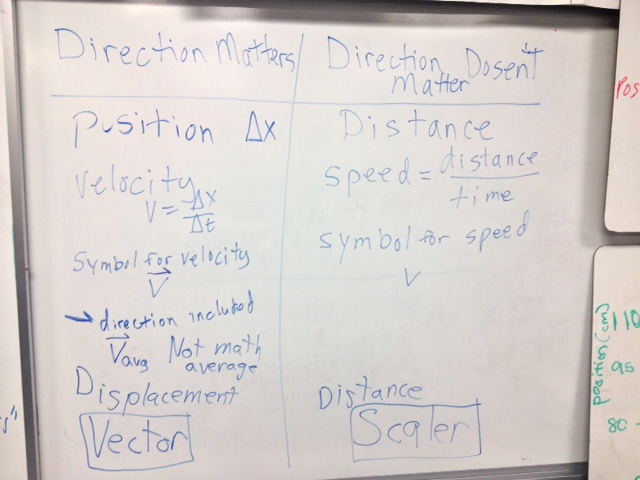 Direction Matters
Position Δx
velocity
V = Δx/Δt
Symbol for velocity
V⃗
→ direction included
V⃗avg Not math
average
Displacement
Vector
Direction Dosen't
Matter
Distance
speed = distance/time
symbol for speed
V
Distance
Scaler
Pos
position (cm)
110
95
80